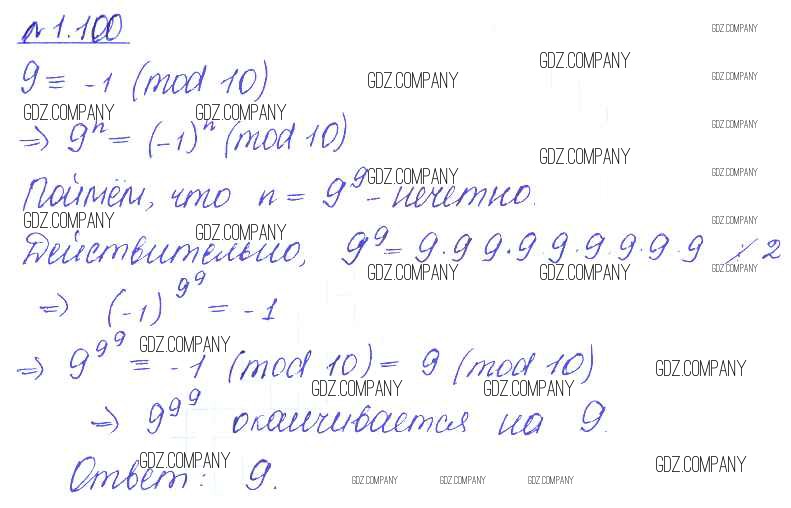 № 1.100
GDZ.COMPANY
GDZ.COMPANY
9 ≡ -1 (mod 10)
GDZ.COMPANY
GDZ.COMPANY
GDZ.COMPANY GDZ.COMPANY
GDZ.COMPANY
⇒ 9ⁿ = (-1)ⁿ (mod 10)
GDZ.COMPANY
GDZ.COMPANY
GDZ.COMPANY
Поймём, что n = 9⁹ - нечетно.
GDZ.COMPANY GDZ.COMPANY
GDZ.COMPANY
Действительно, 9⁹ = 9·9 9·9 9·9·9·9·9 ⋮̸ 2
GDZ.COMPANY GDZ.COMPANY GDZ.COMPANY
⇒ (-1)^9^9 = -1
GDZ.COMPANY
⇒ 9^9^9 ≡ -1 (mod 10) = 9 (mod 10)
GDZ.COMPANY
GDZ.COMPANY GDZ.COMPANY
⇒ 9^9^9 оканчивается на 9.
GDZ.COMPANY
GDZ.COMPANY
Ответ: 9.
GDZ.COMPANY GDZ.COMPANY GDZ.COMPANY